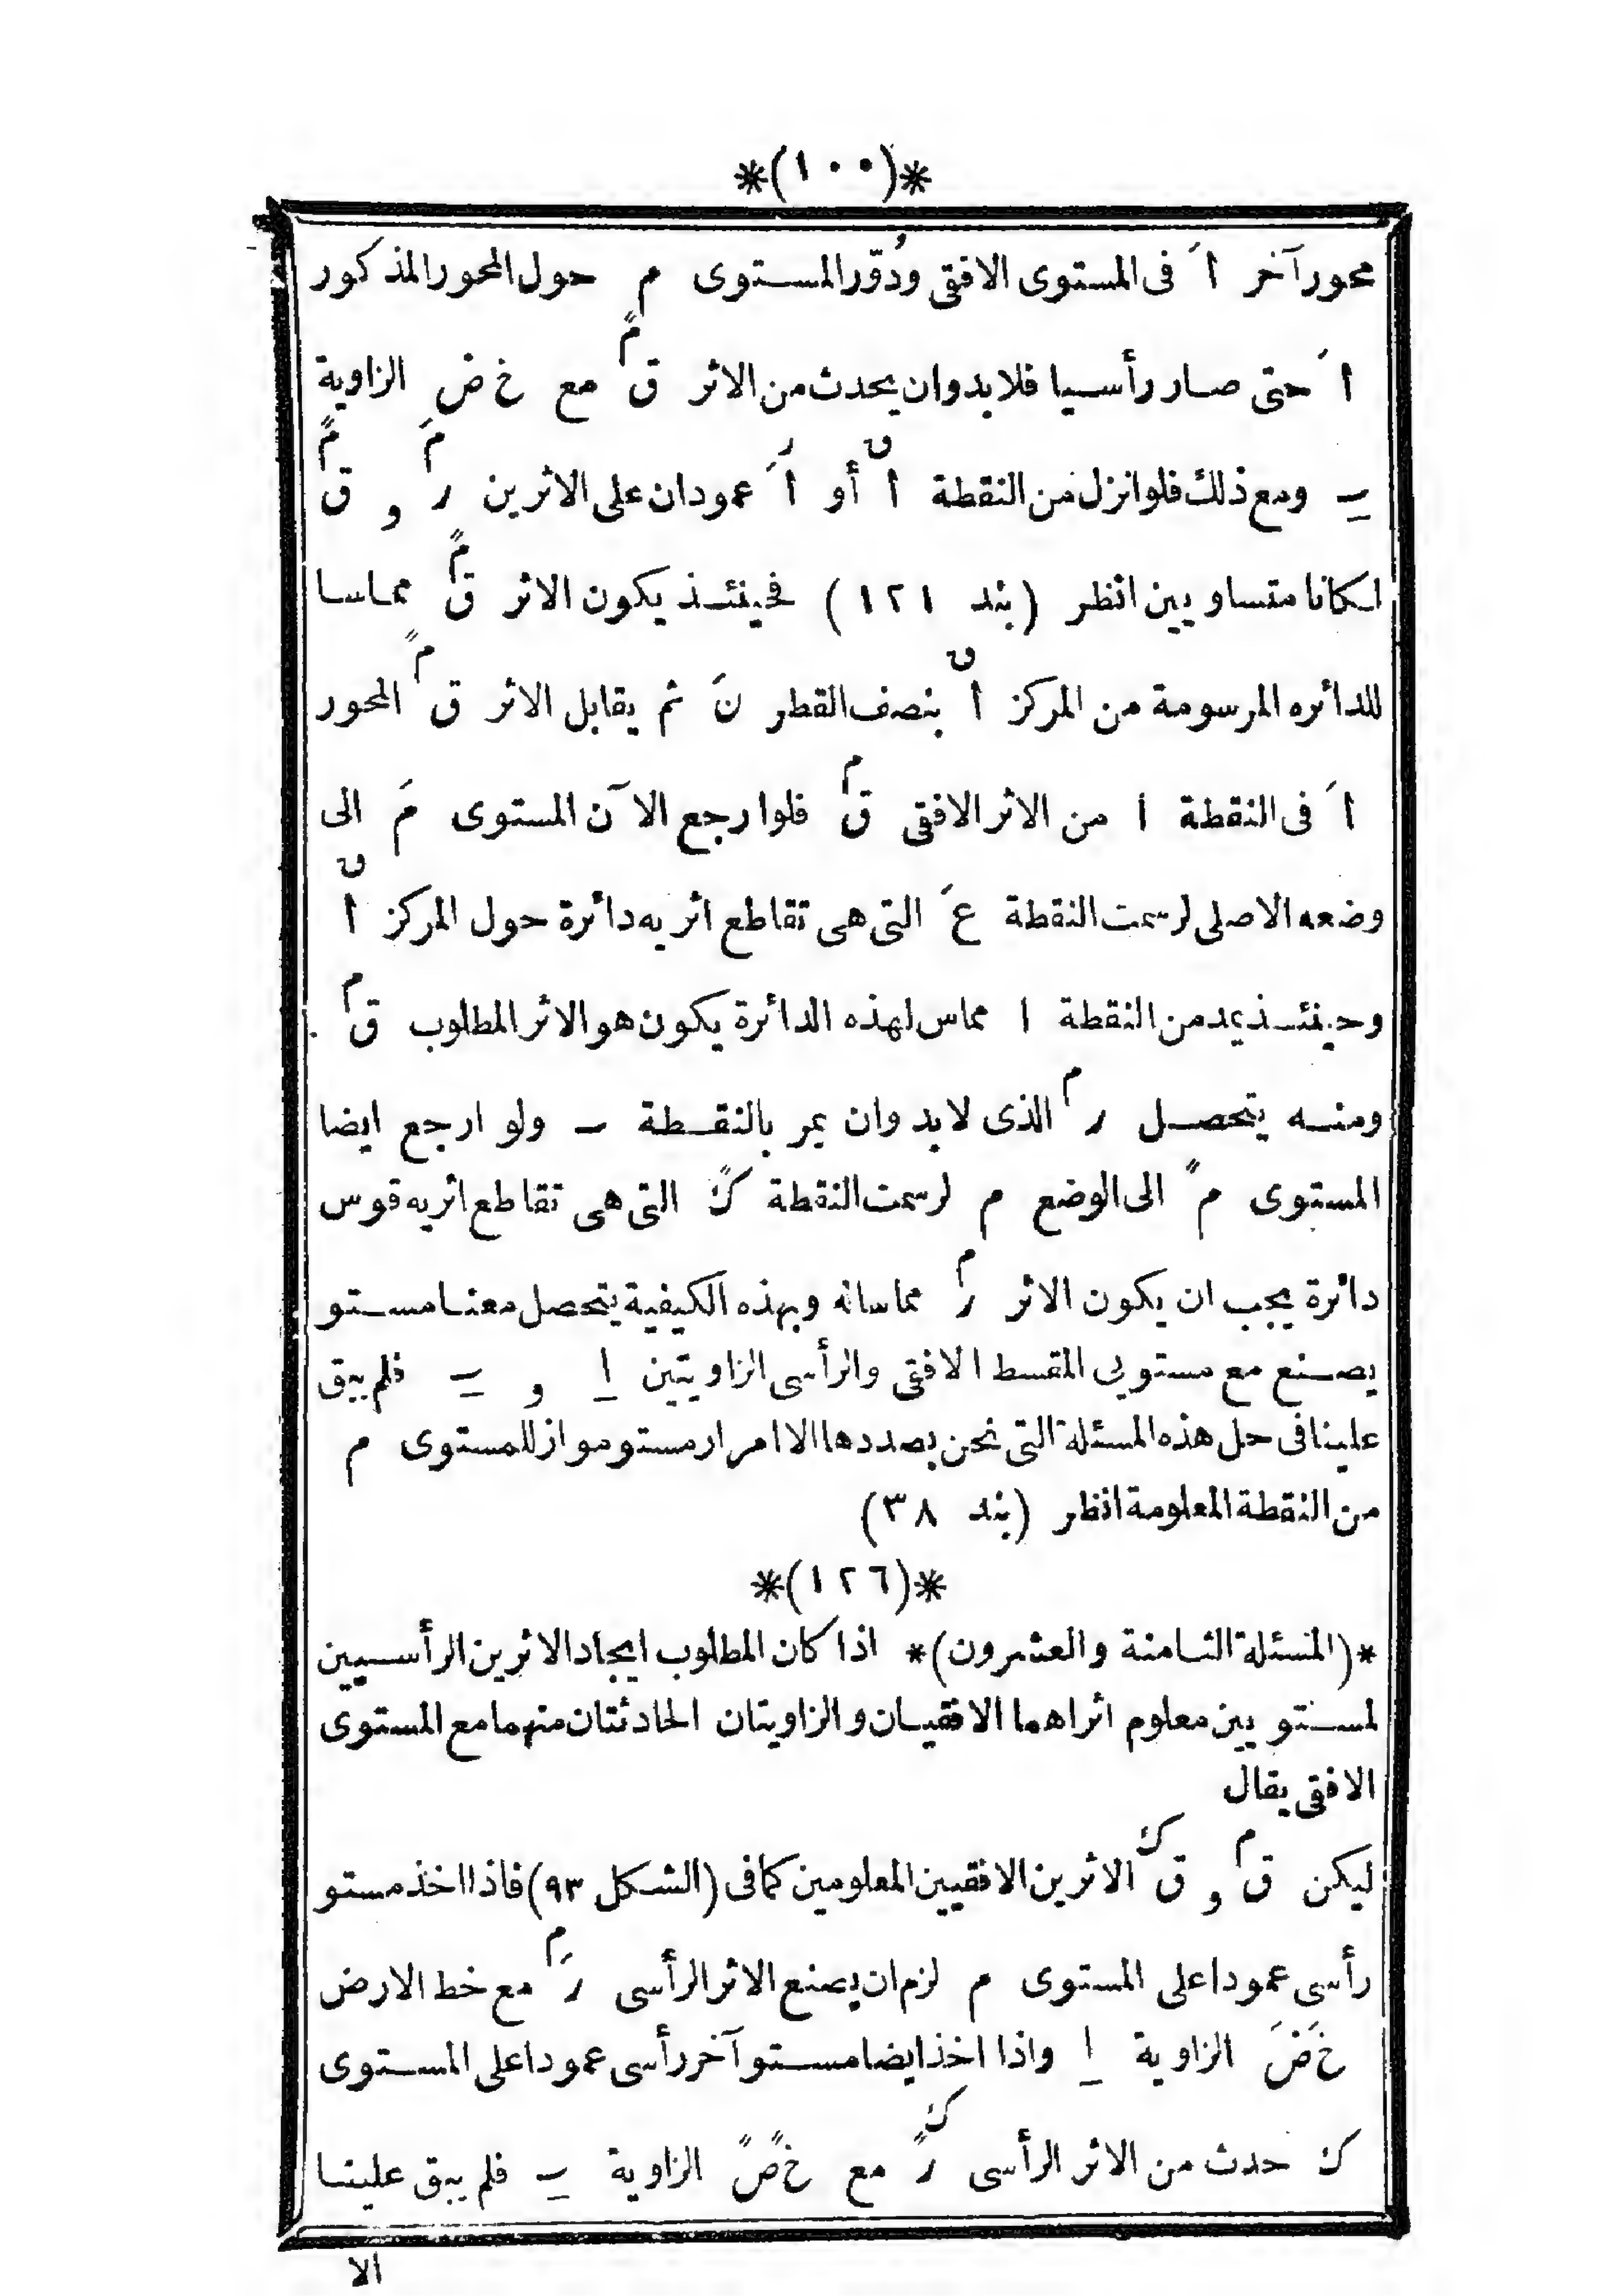 *(١٠٠)*
محور آخر اَ فى المستوى الافقى ودُوّر المستوى م حول المحور المذكور
اَ حتى صار رأسيا فلا بد وان يحدث من الاثر ق مً مع خ ض الزاوية
ب ومع ذلك فلو انزل من النقطة اً ں أو اَ ر عمودان على الاثرين ر مَ و ق مً
لكانا متساويين انظر (بند ١٢١) فحينئذ يكون الاثر ق مً مماسا
للدائره المرسومة من المركز اً ں بنصف القطر نَ ثم يقابل الاثر ق مً المحور
اَ فى النقطة ا من الاثر الافقى ق م فلو ارجع الآن المستوى مَ الى
وضعه الاصلى لرسمت النقطة عَ التى هى تقاطع اثريه دائرة حول المركز اً ں
وحينئذ يمد من النقطة ا مماس لهذه الدائرة يكون هو الاثر المطلوب ق م .
ومنه يتحصل ر م الذى لا بد وان يمر بالنقطة ب ولو ارجع ايضا
المستوى مً الى الوضع م لرسمت النقطة كً التى هى تقاطع اثريه قوس
دائرة يجب ان يكون الاثر ر م مماسا له وبهذه الكيفية يتحصل معنا مستو
يصنع مع مستويى المقسط الافقى والرأسى الزاويتين ا و ب فلم يبق
علينا فى حل هذه المسئلة التى نحن بصددها الا امرار مستو مواز للمستوى م
من النقطة المعلومة انظر (بند ٣٨)
*(١٢٦)*
*(المسئلة الثامنة والعشرون)* اذا كان المطلوب ايجاد الاثرين الرأسيين
لمستويين معلوم اثراهما الافقيان والزاويتان الحادثتان منهما مع المستوى
الافقى يقال
ليكن ق م و ق ك الاثرين الافقيين المعلومين كما فى (الشكل ٩٣) فاذا اخذ مستو
رأسى عمودا على المستوى م لزم ان يصنع الاثر الرأسى رَ م مع خط الارض
خَ ضَ الزاوية ا واذا اخذ ايضا مستو آخر رأسى عمودا على المستوى
ك حدث من الاثر الرأسى رً ك مع خً ضً الزاوية ب فلم يبق علينا
الا